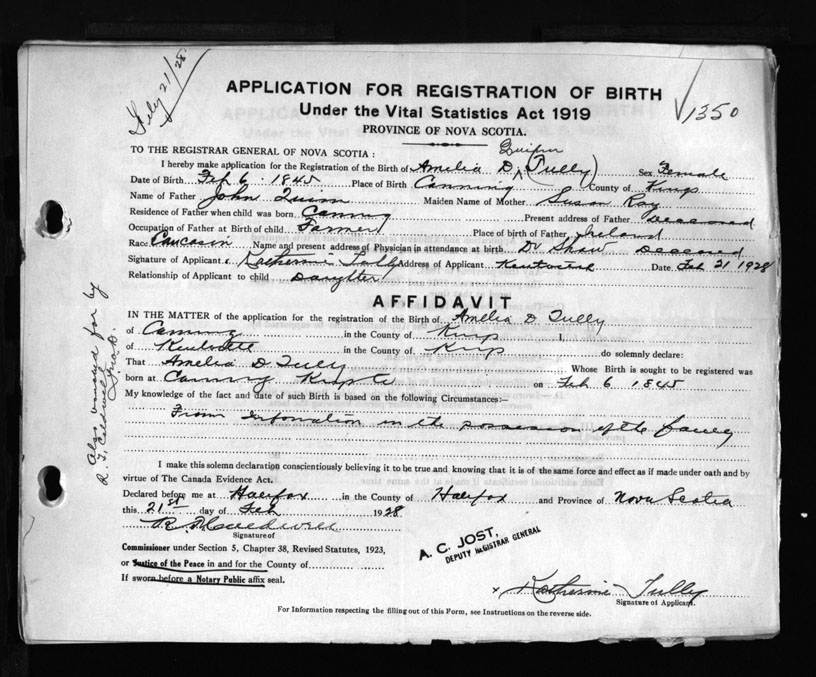 Feby 21/28
APPLICATION FOR REGISTRATION OF BIRTH
1350
Under the Vital Statistics Act 1919
PROVINCE OF NOVA SCOTIA.
TO THE REGISTRAR GENERAL OF NOVA SCOTIA :
I hereby make application for the Registration of the Birth of Amelia D. (Tully) Sex Female
Date of Birth Feb 6. 1845 Place of Birth Canning County of Kings
Name of Father John Quinn Maiden Name of Mother Susan Ray
Residence of Father when child was born Canning Present address of Father Deceased
Occupation of Father at Birth of child Farmer Place of birth of Father Ireland
Race Caucasin Name and present address of Physician in attendance at birth Dr Shaw Deceased
Signature of Applicant x Katherine Tully Address of Applicant Kentville Date Feb 21 1928
Relationship of Applicant to child Daughter
AFFIDAVIT
IN THE MATTER of the application for the registration of the Birth of Amelia D Tully
of Canning in the County of Kings I,
of Kentville in the County of Kings do solemnly declare:
That Amelia D Tully Whose Birth is sought to be registered was
born at Canning Kings Co on Feb 6 1845
My knowledge of the fact and date of such Birth is based on the following Circumstances:—
From information in the possession of the family
I make this solemn declaration conscientiously believing it to be true and knowing that it is of the same force and effect as if made under oath and by
virtue of The Canada Evidence Act.
Declared before me at Halifax in the County of Halifax and Province of Nova Scotia
this 21st day of Feb 1928
Signature of
Commissioner under Section 5, Chapter 38, Revised Statutes, 1923,
or Justice of the Peace in and for the County of
If sworn before a Notary Public affix seal.
A. C. JOST,
DEPUTY REGISTRAR GENERAL
x Katherine Tully
Signature of Applicant.
For Information respecting the filling out of this Form, see Instructions on the reverse side.
Also vouched for by
R. F. Caldwell